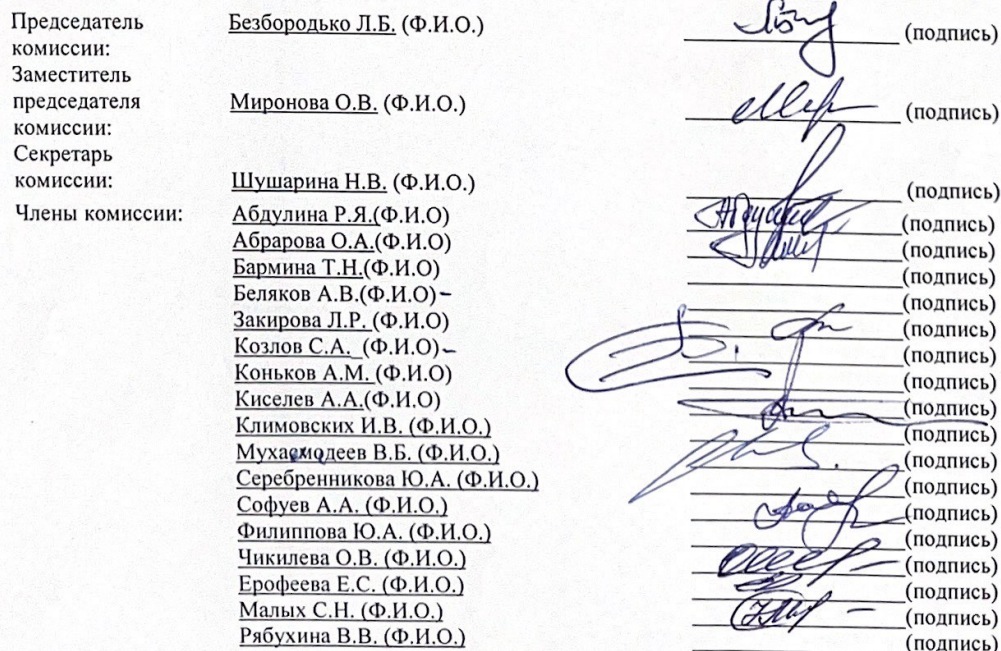 Председатель
комиссии:
Безбородько Л.Б. (Ф.И.О.) (подпись)
Заместитель
председателя
комиссии:
Миронова О.В. (Ф.И.О.) (подпись)
Секретарь
комиссии:
Шушарина Н.В. (Ф.И.О.) (подпись)
Члены комиссии: Абдулина Р.Я.(Ф.И.О) (подпись)
Абрарова О.А.(Ф.И.О) (подпись)
Бармина Т.Н.(Ф.И.О) (подпись)
Беляков А.В.(Ф.И.О) (подпись)
Закирова Л.Р. (Ф.И.О) (подпись)
Козлов С.А. (Ф.И.О) (подпись)
Коньков А.М. (Ф.И.О) (подпись)
Киселев А.А.(Ф.И.О) (подпись)
Климовских И.В. (Ф.И.О.) (подпись)
В.Б. (Ф.И.О.) (подпись)
Серебренникова Ю.А. (Ф.И.О.) (подпись)
Софуев А.А. (Ф.И.О.) (подпись)
Филиппова Ю.А. (Ф.И.О.) (подпись)
Чикилева О.В. (Ф.И.О.) (подпись)
Ерофеева Е.С. (Ф.И.О.) (подпись)
Малых С.Н. (Ф.И.О.) (подпись)
Рябухина В.В. (Ф.И.О.) (подпись)